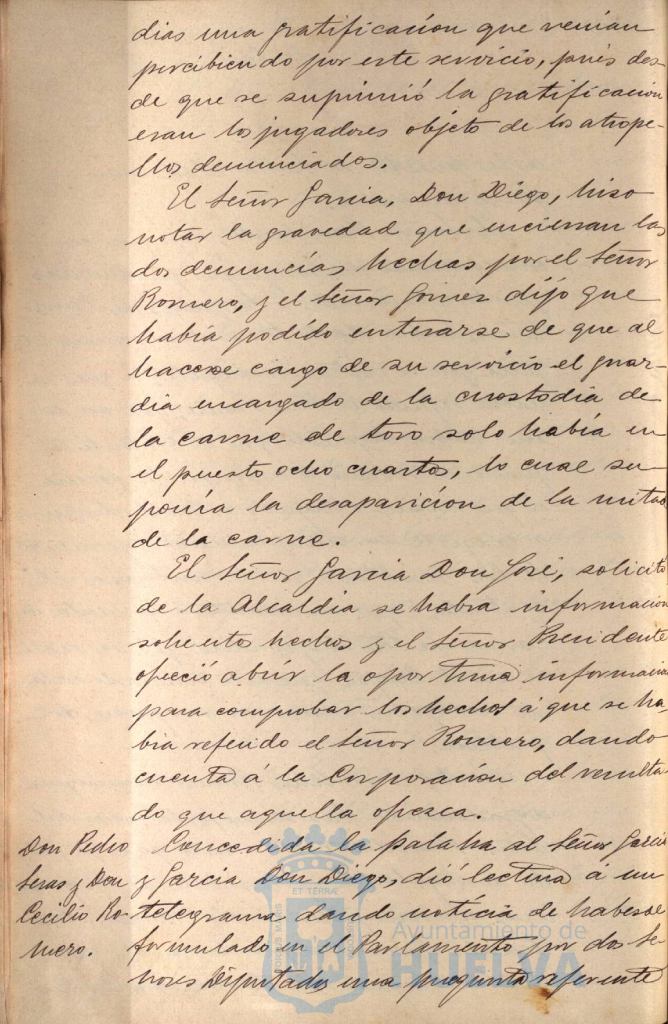 dias una gratificación que venian
percibiendo por este servicio, pues des-
de que se suprimió la gratificación
eran los jugadores objeto de los atrope-
llos denunciados.
El Señor Garcia, Don Diego, hizo
notar la gravedad que encierran las
dos denuncias hechas por el Señor
Romero, y el Señor Gomez dijo que
había podido enterarse de que al
hacerse cargo de su servicio el guar-
dia encargado de la custodia de
la carne de toro solo había en
el puesto ocho cuartos, lo cual su-
ponia la desaparicion de la mitad
de la carne.
El Señor Garcia Don José, solicitó
de la Alcaldia se habra informacion
sobre esto hechos y el Señor Presidente
ofreció abrir la oportuna informacion
para comprobar los hechos á que se ha
bia referido el Señor Romero, dando
cuenta á la Corporación del resulta-
do que aquella ofrezca.
Don Pedro
Seras y Don
Cecilio Ro-
mero.
Concedida la palabra al Señor Garcia
y Garcia Don Diego, dió lectura á un
telegrama dando noticia de haberse
formulado en el Parlamento por dos Se-
ñores Diputados una pregunta referente
ET TERRÆ
Ayuntamiento de
HUELVA